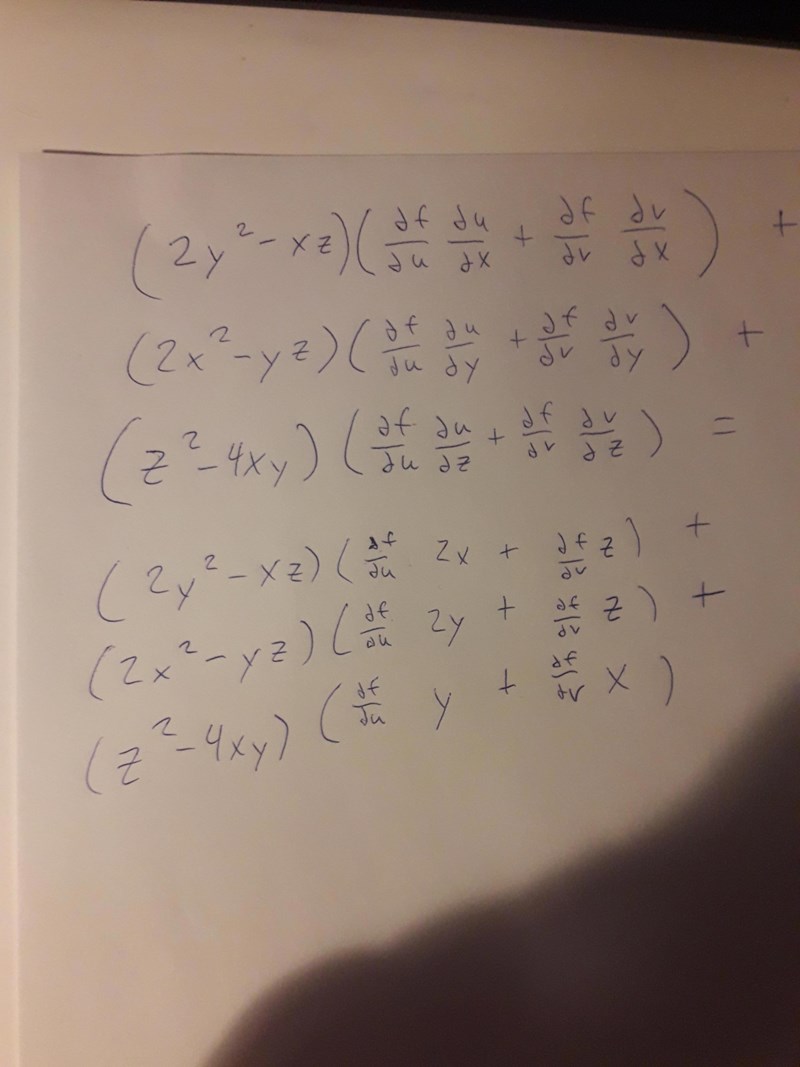 (2y²-xz)(∂f/∂u ∂u/∂x + ∂f/∂v ∂v/∂x) +
(2x²-yz)(∂f/∂u ∂u/∂y + ∂f/∂v ∂v/∂y) +
(z²-4xy)(∂f/∂u ∂u/∂z + ∂f/∂v ∂v/∂z) =
(2y²-xz)(∂f/∂u 2x + ∂f/∂v z) +
(2x²-yz)(∂f/∂u 2y + ∂f/∂v z) +
(z²-4xy)(∂f/∂u y + ∂f/∂v x)